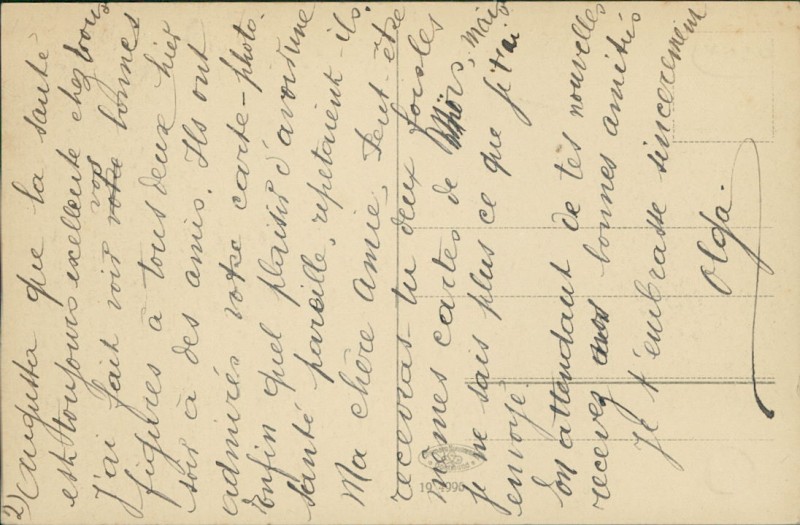 2) Augusta que la santé
est toujours exellente chez vous
J'ai fait voir votre vos bonnes
figures à tous deux hier
soir à des amis. Ils ont
admirés votre carte-photo.
Enfin quel plaisir d'avoir une
santé pareille, repetaient-ils.
Ma chère amie, Peut-être
recevras-tu deux fois les
mêmes cartes de moi, mais
je ne sais plus ce que je t'ai
envoyé.
En attendant de tes nouvelles
recevez nos bonnes amitiés
Je t'embrasse sincerement
Olga.
19 4990